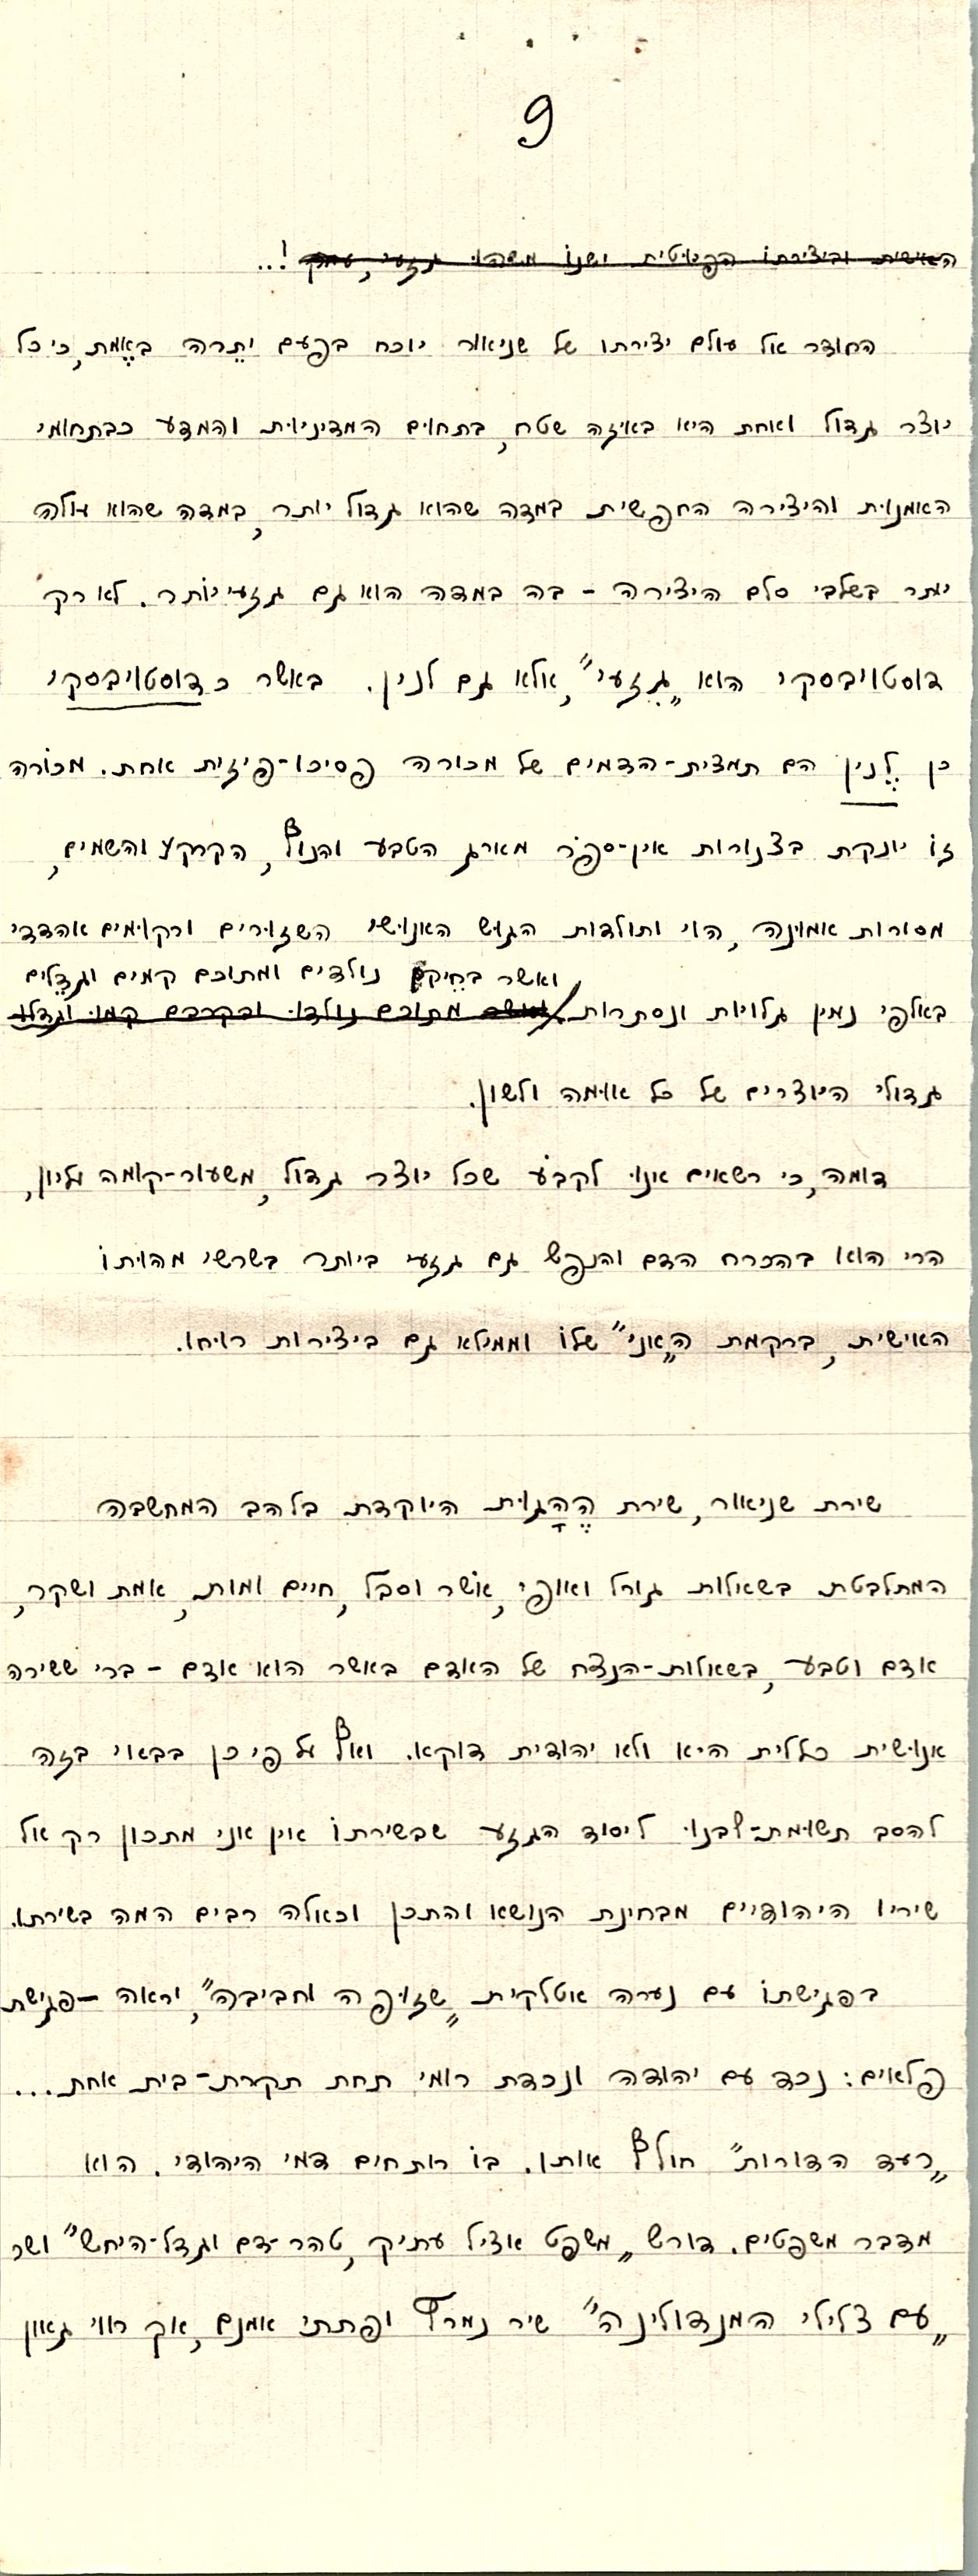 9
האישית וביצירתו הפיוטית ישנו משהו גזעי, עמק !..
החודר אל עולם יצירתו של שניאור יוכח בפעם יתרה באמת, כי כל
יוצר גדול ואחת היא באיזה שטח, בתחום המדיניות והמדע כבתחומי
האמנות והיצירה החפשית במדה שהוא גדול יותר, במדה שהוא עולה
יותר בשלבי סלם היצירה – בה במדה הוא גם גזעי יותר. לא רק
דוסטויבסקי הוא „גזעי”, אלא גם לנין. באשר כדוסטויבסקי
כן לנין הם תמצית-הדמים של מכורה פסיכו-פיזית אחת. מכורה
זו יונקת בצנורות אין-ספר מארג הטבע והנוף, הקרקע והשמים,
מסורות אמונה, הוי ותולדות הגוש האנושי השזורים ורקומים אהדדי
ואשר בחיקם נולדים ומתוכם קמים וגדלים
באלפי נמין גלויות ונסתרות ואשר מתוכם נולדו ובקרבם קמו וגדלו
גדולי היוצרים של כל אומה ולשון.
דומה, כי רשאים אנו לקבע שכל יוצר גדול, משעור-קומה עליון,
הרי הוא בהכרח הדם והנפש גם גזעי ביותר בשרשי מהויתו
האישית, ברקמת ה„אני” שלו וממילא גם ביצירות רוחו.
שירת שניאור, שירת ההגות היוקדת בלהב המחשבה
המתלבטת בשאלות גורל ואופי, אשר וסבל, חיים ומות, אמת ושקר,
אדם וטבע, בשאלות-הנצח של האדם באשר הוא אדם – ברי ששירה
אנושית כללית היא ולא יהודית דוקא. ואף על פי כן בבאוי בזה
להסב תשומת-לבנו ליסוד הגזע שבשירתו אין אני מתכון רק אל
שיריו היהודיים מבחינת הנושא והתכן וכאלה רבים המה בשירתו.
בפגישתו עם נערה אטלקית „שזופה וחביבה”, וראה – פגישת
פלאים: נכד עם יהודה ונכדת רומי תחת תקרת-בית אחת...
„רעד הדורות” חולף אותו. בו רותחים דמי היהודי. הוא
מדבר משפטים. דורש „משפט אציל עתיק, טהר-דם וגדל-היחש” ושר
„עם צלילי המנדולינה” שיר נמרץ ופתתי אמנם, אך רווי גאון